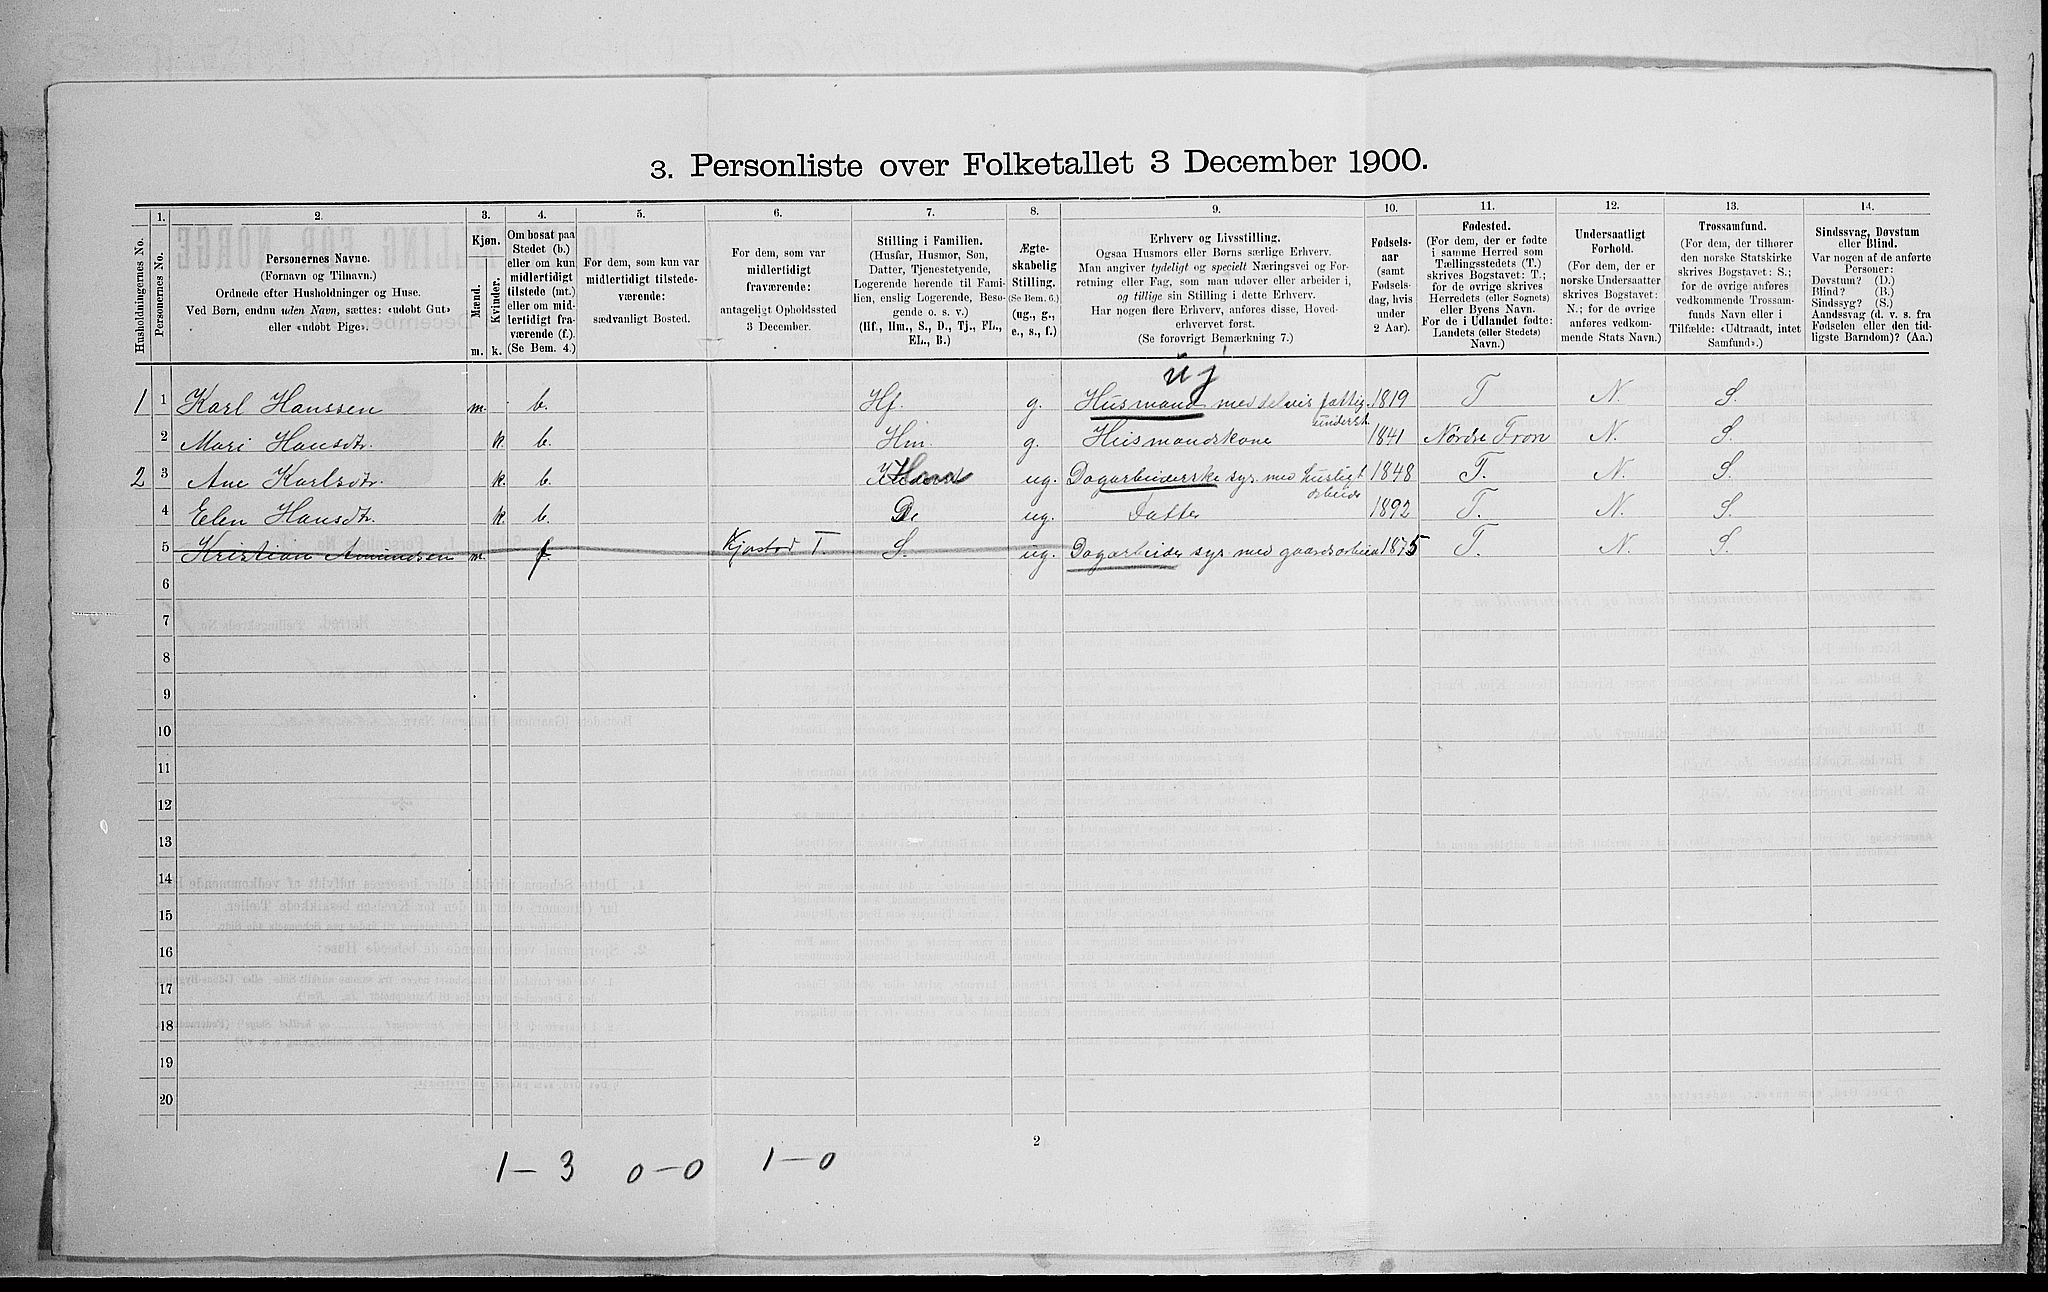 3. Personliste over Folketallet 3 December 1900.
Husholdningernes No.
1.
Personernes No.
2.
Personernes Navne.
(Fornavn og Tilnavn.)
Ordnede efter Husholdninger og Huse.
Ved Børn, endnu uden Navn, sættes: «udøbt Gut»
eller «udøbt Pige».
3.
Kjøn.
Mænd.
Kvinder.
m. k.
4.
Om bosat paa
Stedet (b.)
eller om kun
midlertidigt
tilstede (mt.)
eller om mid-
lertidigt fra-
værende (f.).
(Se Bem. 4.)
5.
For dem, som kun var
midlertidigt tilstede-
værende:
sædvanligt Bosted.
6.
For dem, som var
midlertidigt
fraværende:
antageligt Opholdssted
3 December.
7.
Stilling i Familien.
(Husfar, Husmor, Søn,
Datter, Tjenestetyende,
Logerende hørende til Fami-
lien, enslig Logerende, Besø-
gende o. s. v.)
(Hf., Hm., S., D., Tj., FL.,
EL., B.)
8.
Ægte-
skabelig
Stilling.
(Se Bem. 6.)
(ug., g.,
e., s., f.)
9.
Erhverv og Livsstilling.
Ogsaa Husmors eller Børns særlige Erhverv.
Man angiver tydeligt og specielt Næringsvei og For-
retning eller Fag, som man udøver eller arbeider i,
og tillige sin Stilling i dette Erhverv.
Har nogen flere Erhverv, anføres disse, Hoved-
erhvervet først.
(Se forøvrigt Bemærkning 7.)
10.
Fødsels-
aar
(samt
Fødsels-
dag, hvis
under
2 Aar).
11.
Fødested.
(For dem, der er fødte
i samme Herred som
Tællingsstedets (T.)
skrives Bogstavet: T.;
for de øvrige skrives
Herredets (eller Sognets)
eller Byens Navn.
For de i Udlandet fødte:
Landets (eller Stedets)
Navn.)
12.
Undersaatligt
Forhold.
(For dem, der er
norske Undersaatter
skrives Bogstavet:
N.; for de øvrige
anføres vedkom-
mende Stats Navn.)
13.
Trossamfund.
(For dem, der tilhører
den norske Statskirke
skrives Bogstavet: S.;
for de øvrige anføres
vedkommende Trossam-
funds Navn eller i
Tilfælde: «Udtraadt, intet
Samfund».)
14.
Sindssvag, Døvstum
eller Blind.
Var nogen af de anførte
Personer:
Døvstum? (D.)
Blind? (B.)
Sindssyg? (S.)
Aandssvag (d. v. s. fra
Fødselen eller den tid-
ligste Barndom)? (Aa.)
1 1 Karl Hanssen m. b. Hf. g. Husmand med delvis fattig- 1819 T N. S.
underst.
2 Mari Hansdtr. k. b. Hm. g. Husmandskone 1841 Nordre Fron N. S.
2 3 Ane Karlsdtr. k. b. ug. Dagarbeiderske sys. med husligt 1848 T. N. S.
arbeide
4 Elen Hansdtr. k. b. D. ug. Datter 1892 T. N. S.
5 Kristian Amundsen m. f. Kjørstad T. S. ug. Dagarbeider sys. med gaardsarbeide 1875 T. N. S.
6
7
8
9
10
11
12
13
14
15
16
17
18
19
20
2
1-3 0-0 1-0